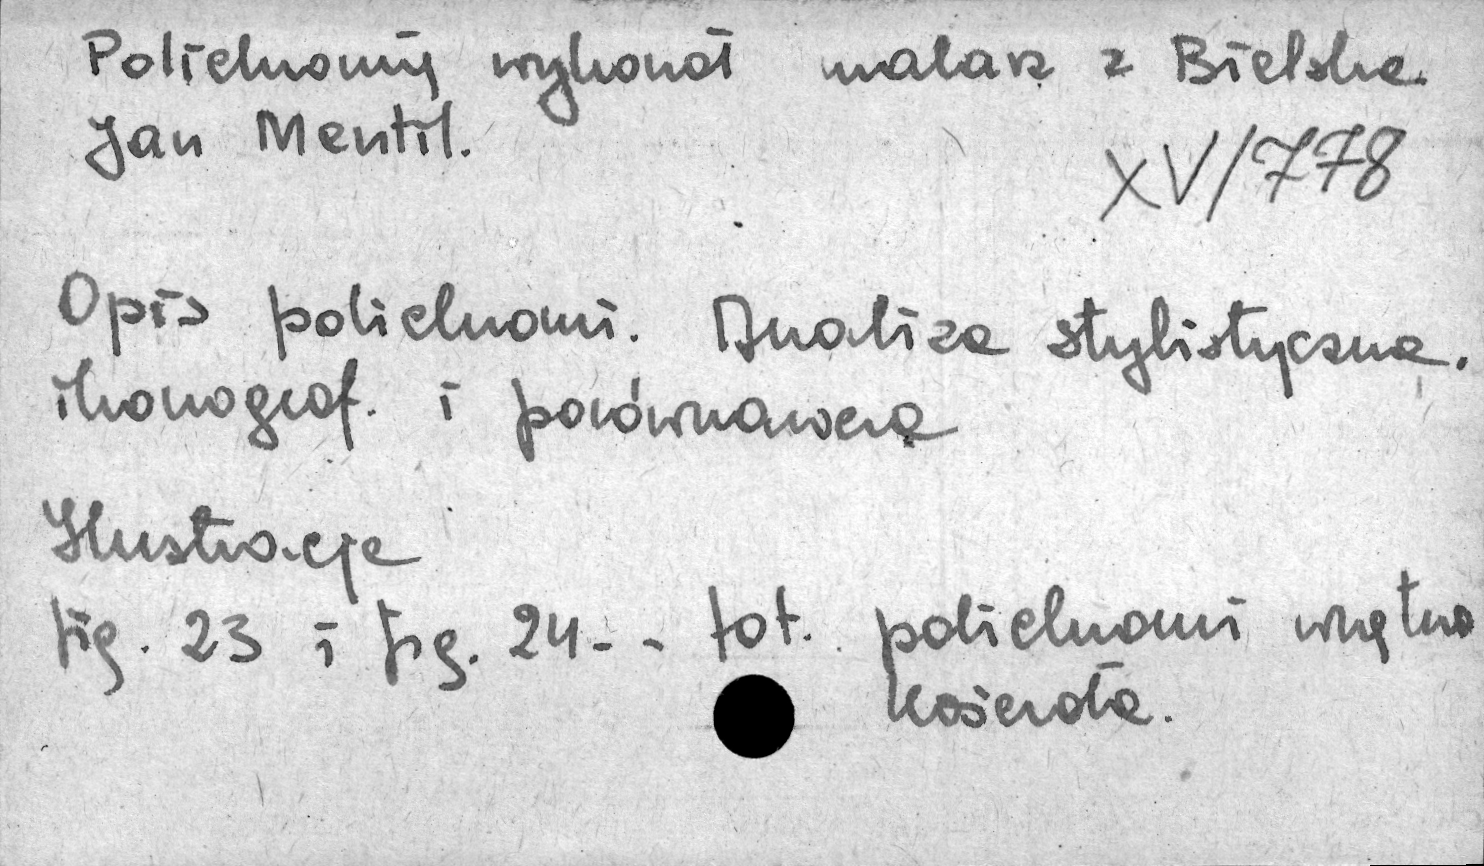 Polichromię wykonał malarz z Bielska
Jan Mentil.
XV/778
Opis polichromi. Analiza stylistyczna.
ikonograf. i porównawcza
Ilustracje
fig. 23 i fig. 24 - - fot. polichromi wnętrza
kościoła.